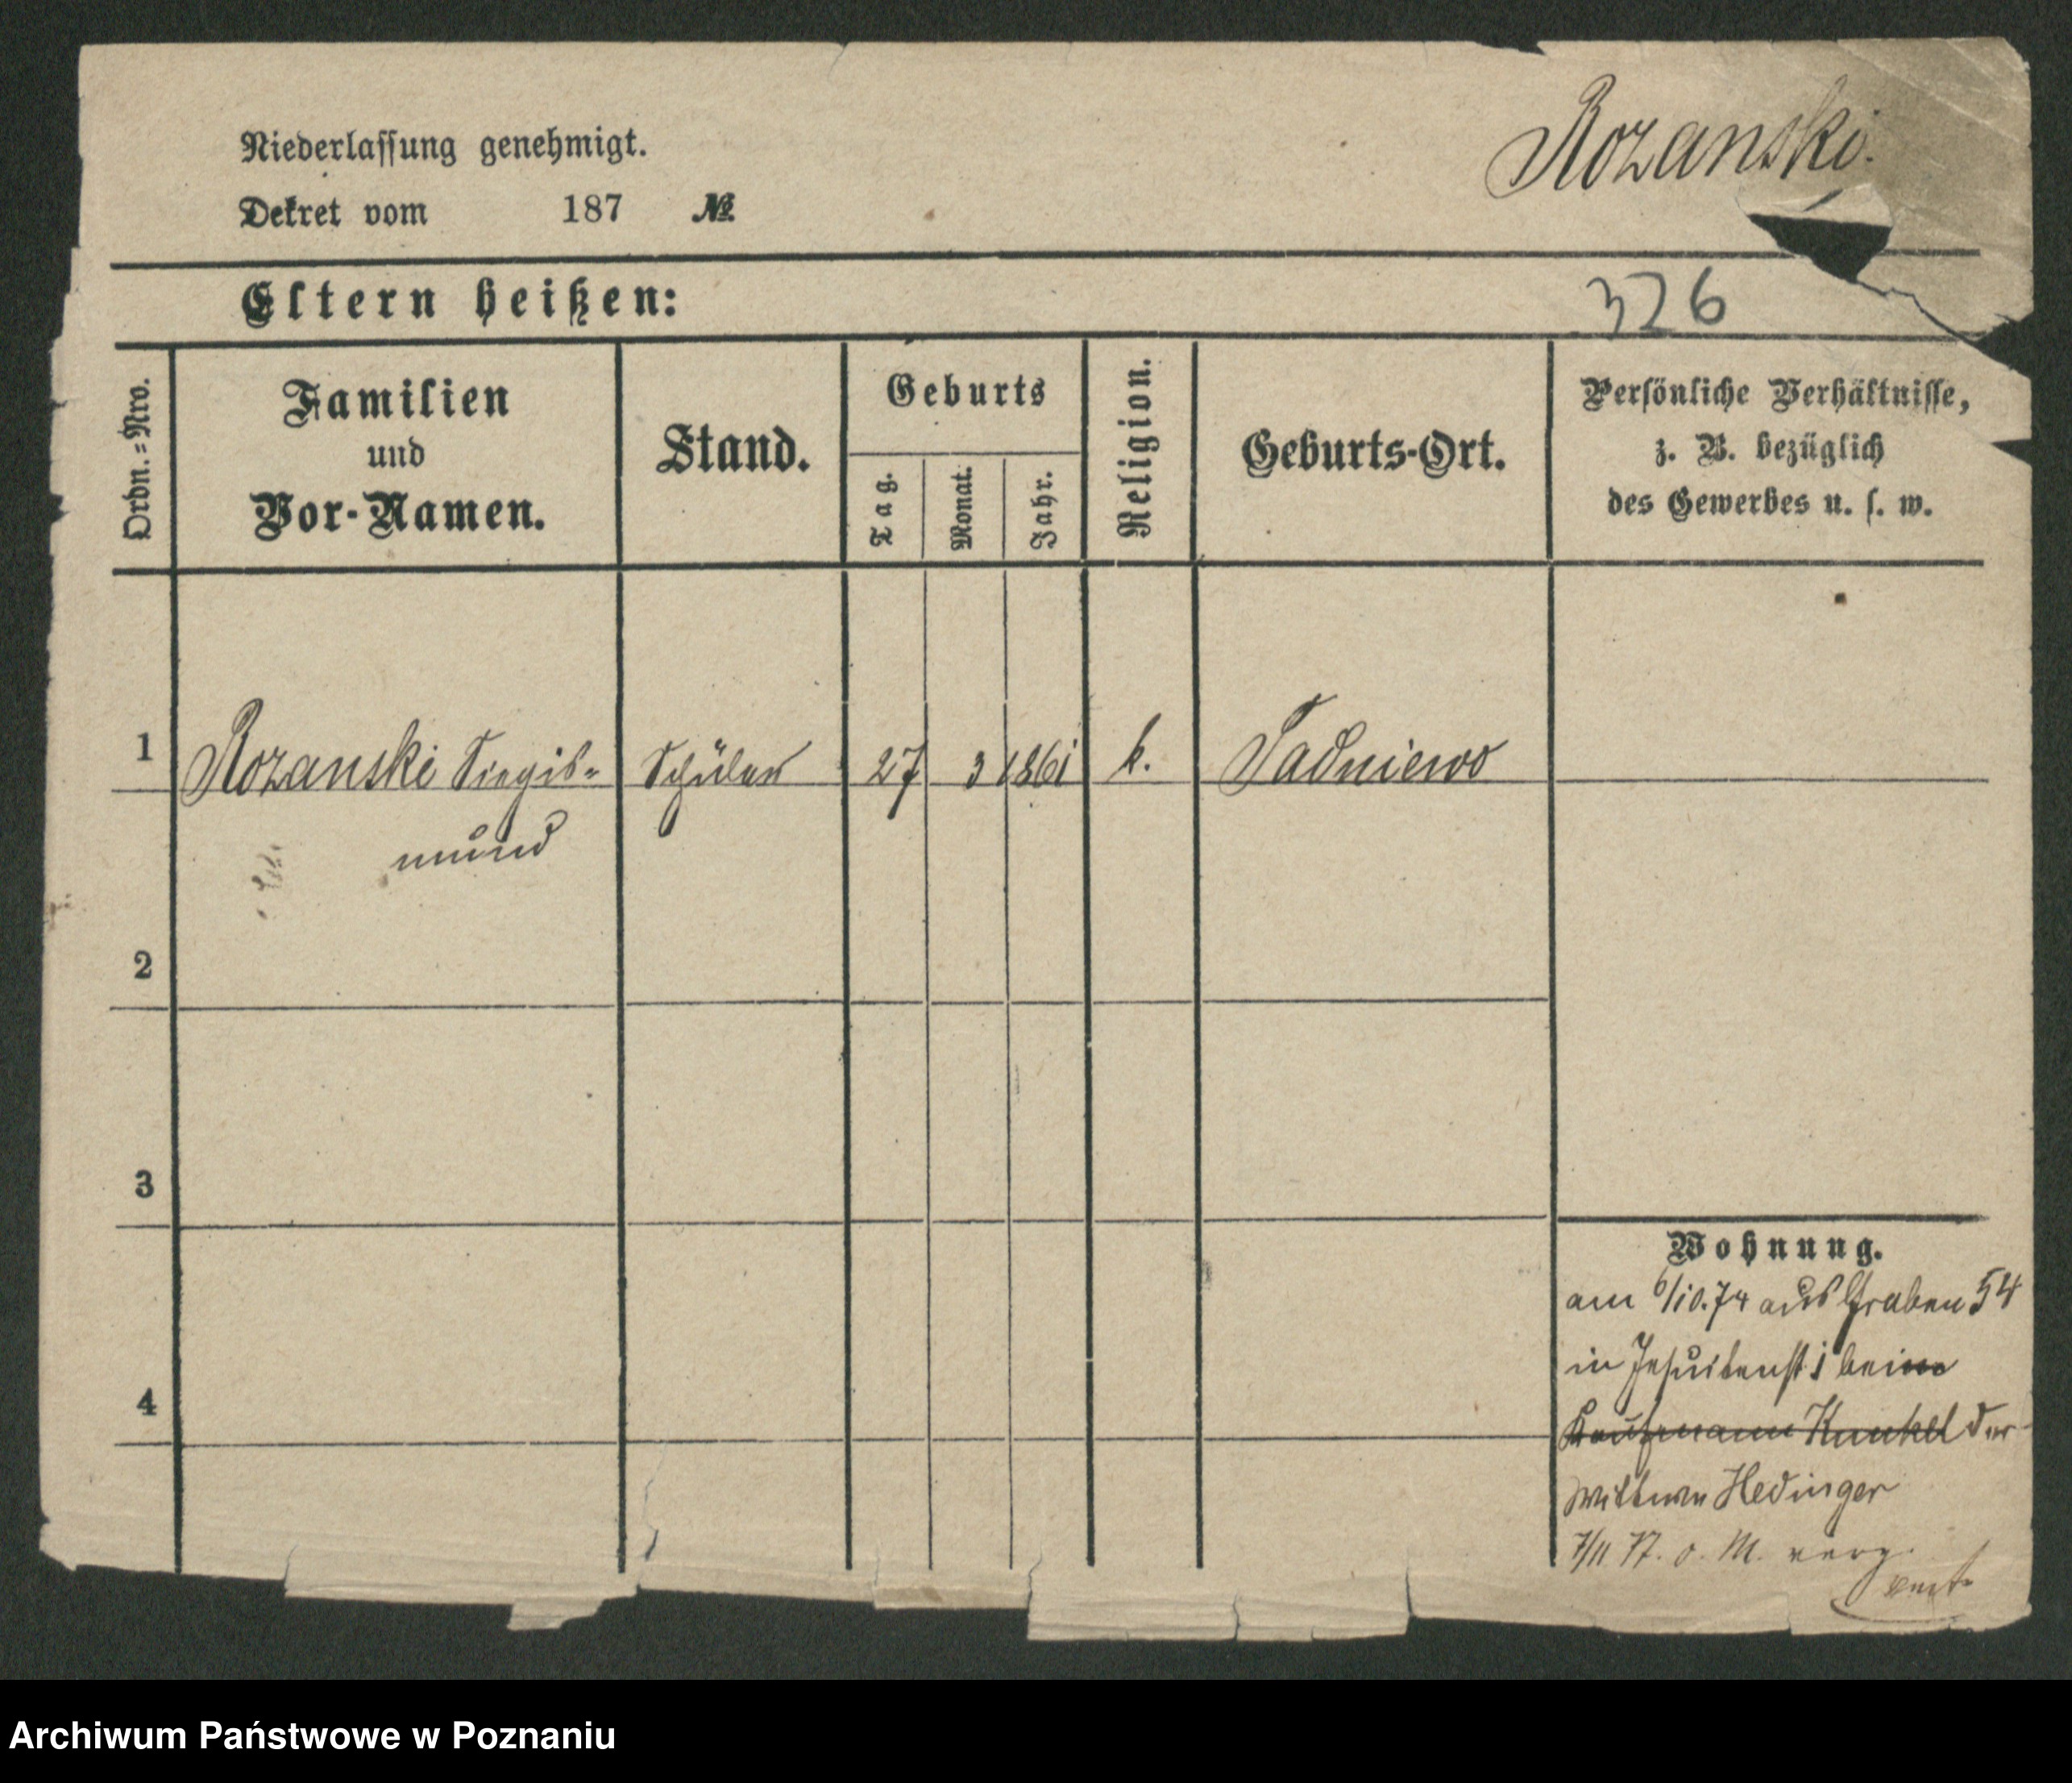 Niederlassung genehmigt.
Rozanski.
Dekret vom 187 №
Eltern heißen:
326
Ordn.=Nro.
Familien
und
Vor-Namen.
Stand.
Geburts
Tag.
Monat.
Jahr.
Religion.
Geburts-Ort.
Persönliche Verhältnisse,
z. B. bezüglich
des Gewerbes u. s. w.
1 Rozanski Siegis= Schüler 27 3 1861 k. Tadniewo
mund
2
3
4
Wohnung.
am 6/10.74 aus Graben 54
in Jesuitenst 1 beim
Kaufmann Kunkel der
Wittwe Hedinger
7/11 77. o. M. verz.
Archiwum Państwowe w Poznaniu